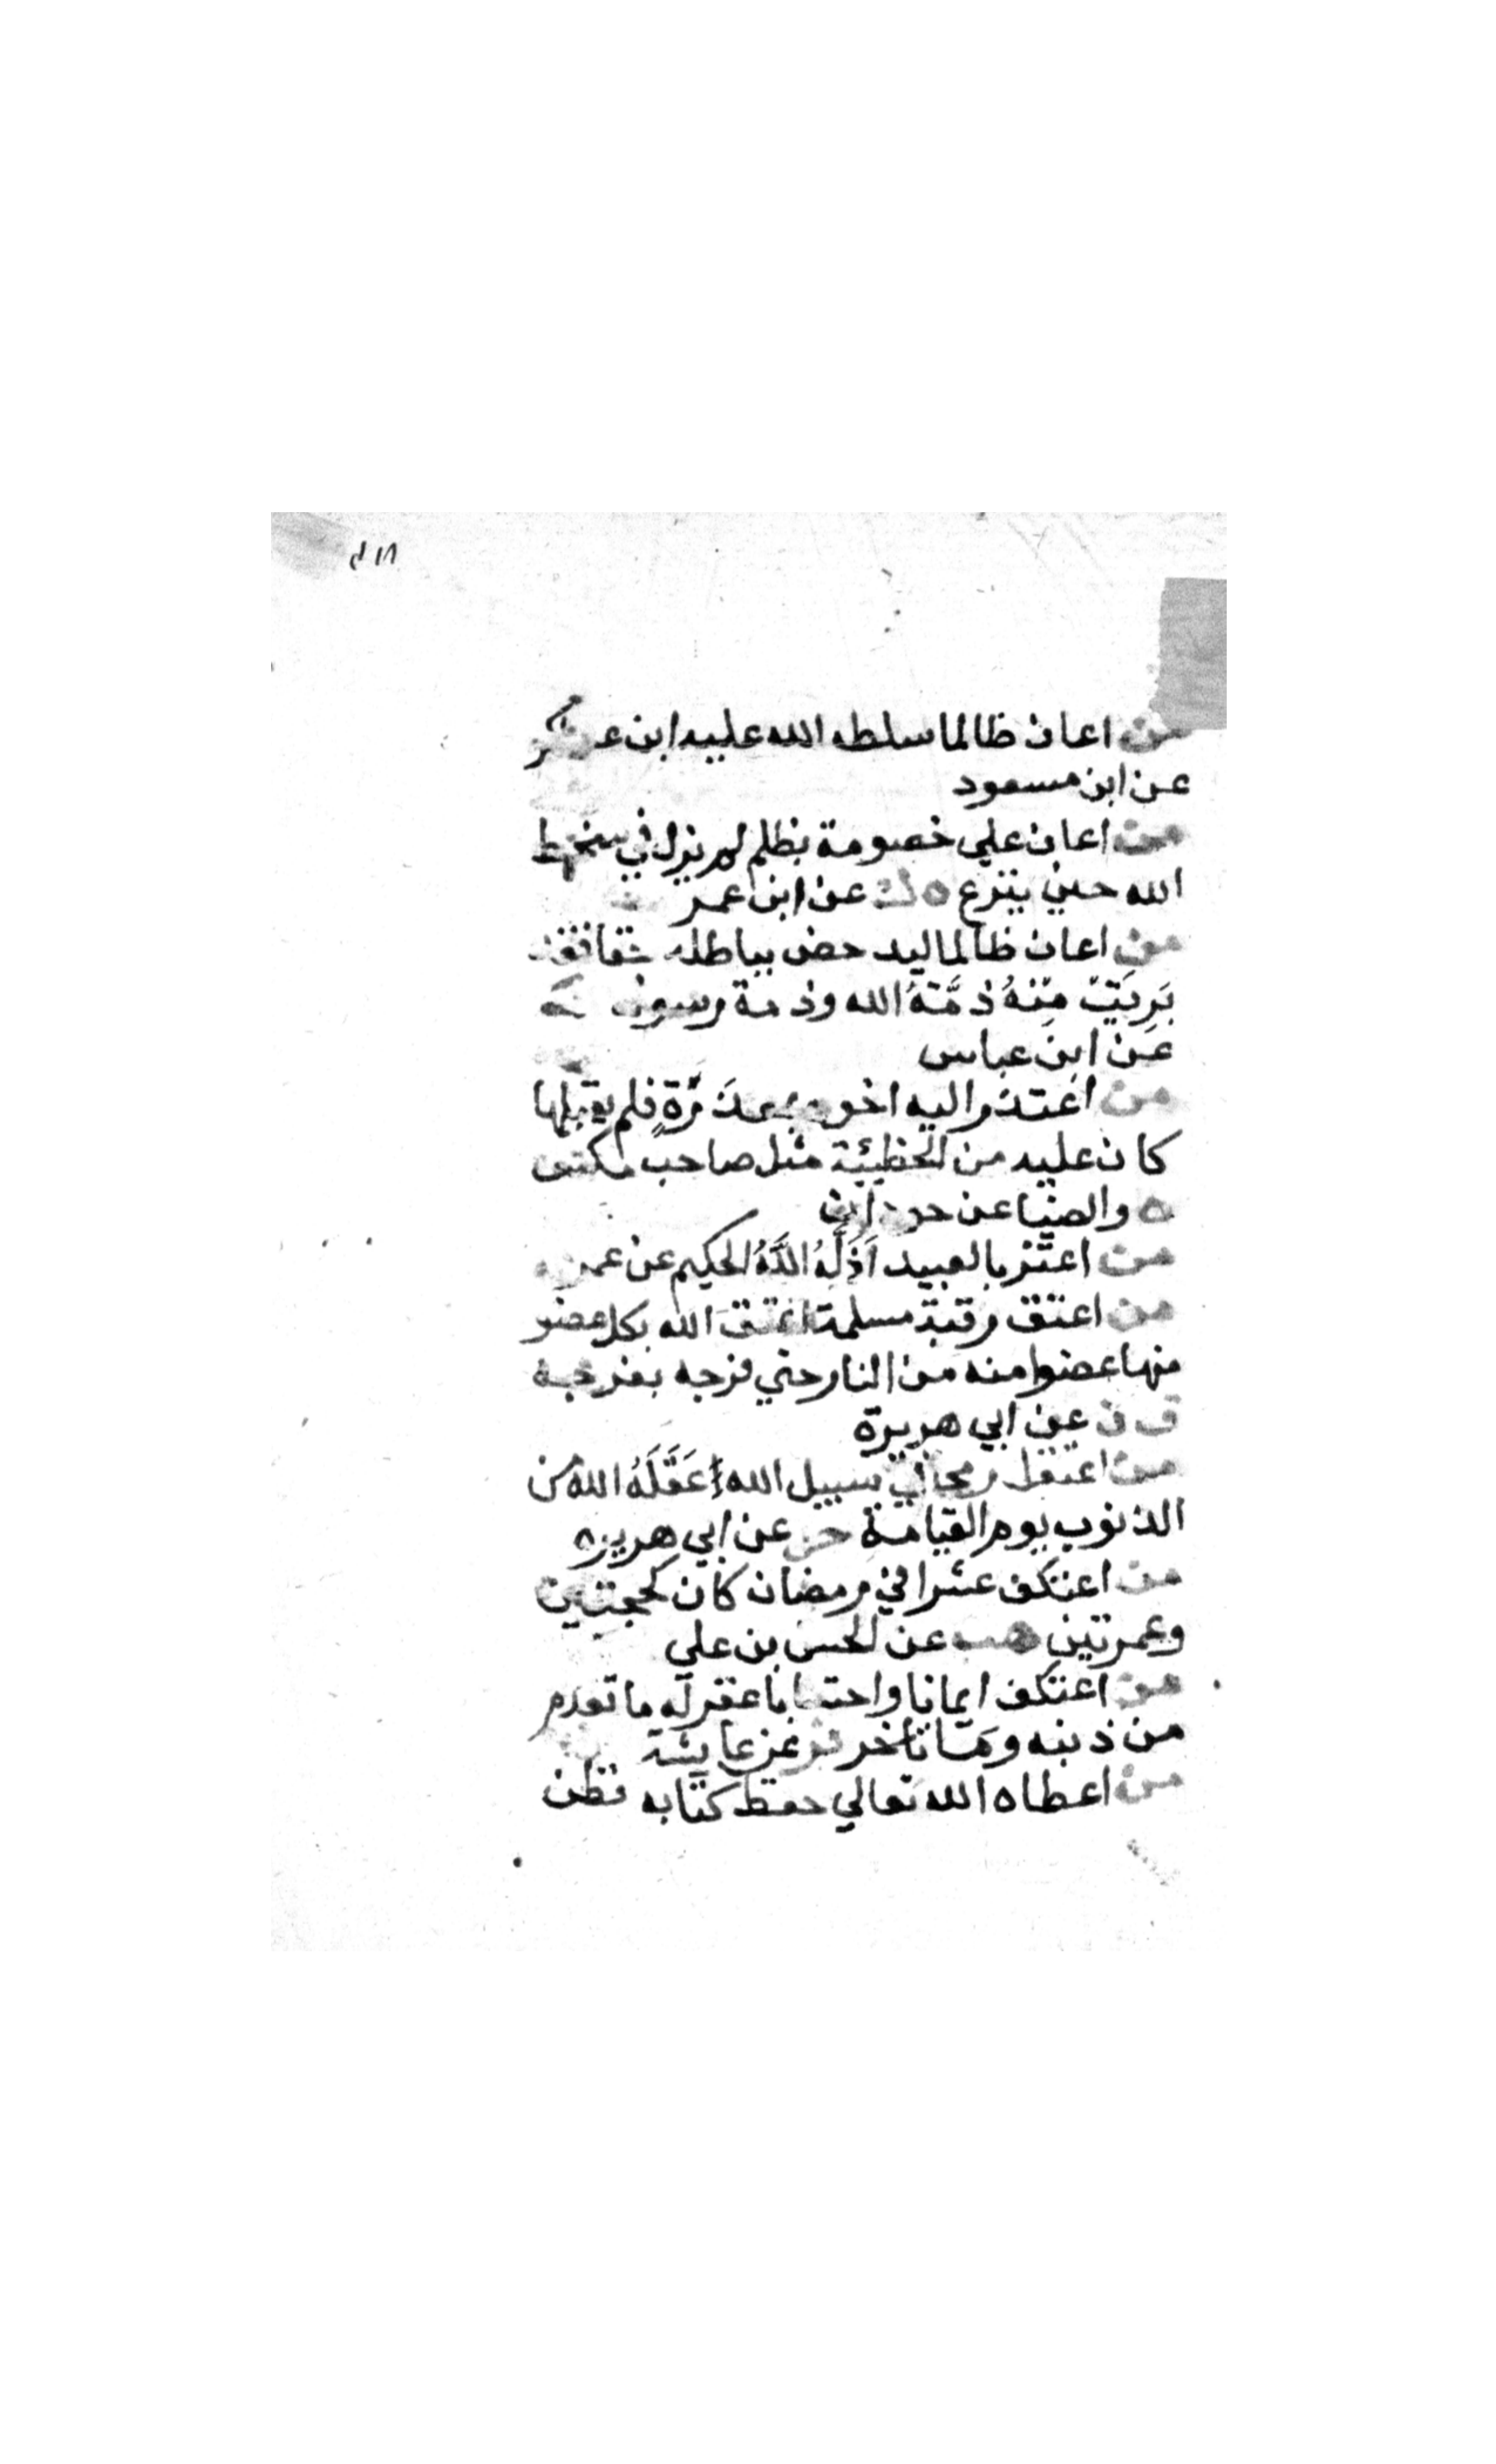 من اعان ظالما سلطه الله عليه ابن عساكر
عن ابن مسعود
من اعان علي خصومة بظلم لم يزل في سخط
الله حتي ينزع ه ك عن ابن عمر
من اعان ظالما ليدحض بباطله حقا فقد
بَرِئَتْ مِنْهُ ذمَّتهُ الله وذمة رسوله ك
عَن ابن عباس
من اعتذر اليه اخوه بمعذرةٍ فلم يقبلها
كان عليه من الخطيئة مثل صاحب مكس
ه والضيا عن جودان
من اعتز بالعبيد اَذَلَّهُ اللَّهُ الحكيم عن عمر
من اعتق رقبة مسلمة اعتق الله بكل عضو
منها عضوا منه من النار حتي فرجه بفرجه
ق ت عن ابي هريرة
من اعتقل رمحا في سبيل الله عَقَلَهُ الله من
الذنوب يوم القيامة حل عن ابي هريره
من اعتكف عشرا في رمضان كان كحجتين
وعمرتين هب عن الحسن بن علي
من اعتكف ايمانا واحتسابا غفر له ما تقدم
من ذنبه وما تاخر فر عن عايشة
من اعطاه الله تعالي حفظ كتابه فظن